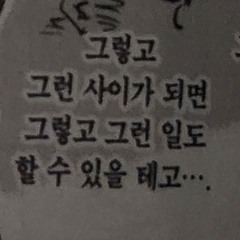 그렇고
그런 사이가 되면
그렇고 그런 일도
할 수 있을 테고….